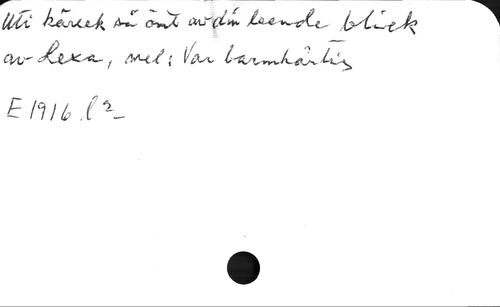 Uti kärlek så ömt av din leende blick
av Lexa, mel: Var barmhärtig
E 1916 l 2